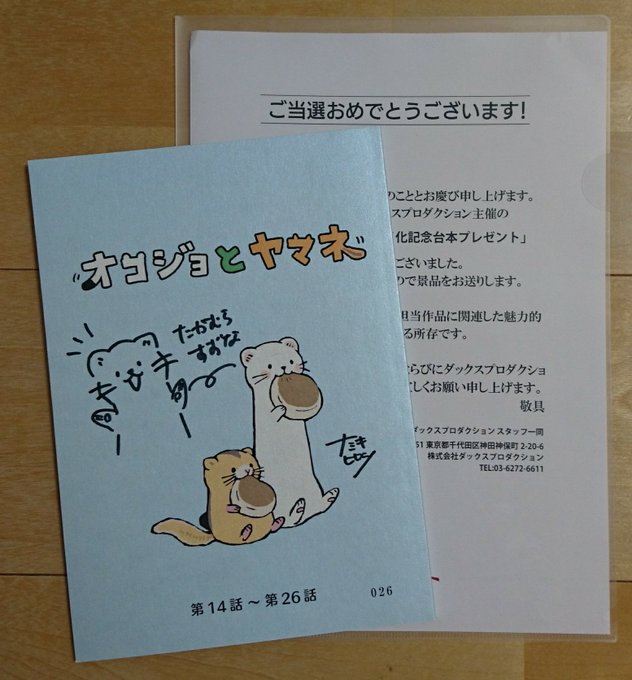 オコジョとヤマネ
たかむら
すずな
ナミキ
ヒロシ
第14話～第26話
026
ご当選おめでとうございます！
のこととお慶び申し上げます。
スプロダクション主催の
化記念台本プレゼント」
ございました。
ので景品をお送りします。
担当作品に関連した魅力的
る所存です。
らびにダックスプロダクショ
しくお願い申し上げます。
敬具
ダックスプロダクション スタッフ一同
51 東京都千代田区神田神保町 2-20-6
株式会社ダックスプロダクション
TEL:03-6272-6611